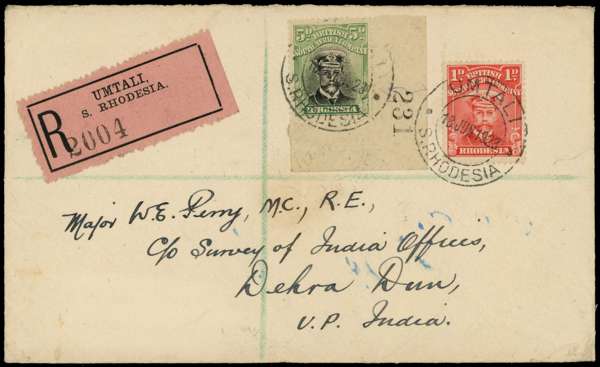 UMTALI,
S. RHODESIA.
R 2004
5D 5D
BRITISH
SOUTH AFRICA COMPANY
RHODESIA
S. RHODESIA
231
1D 1D
BRITISH
RHODESIA
UMTALI
JUN
S. RHODESIA
Major W.E. Perry, M.C., R.E.,
c/o Survey of India Offices,
Dehra Dun,
U.P. India.